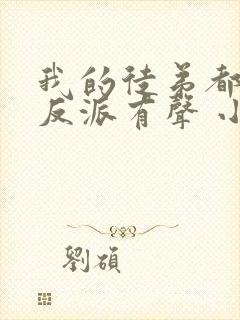 我的徒弟都
反派有聲小
劉碩